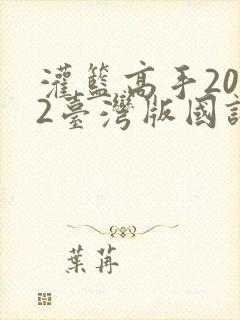 灌籃高手20
2臺灣版國
葉苒